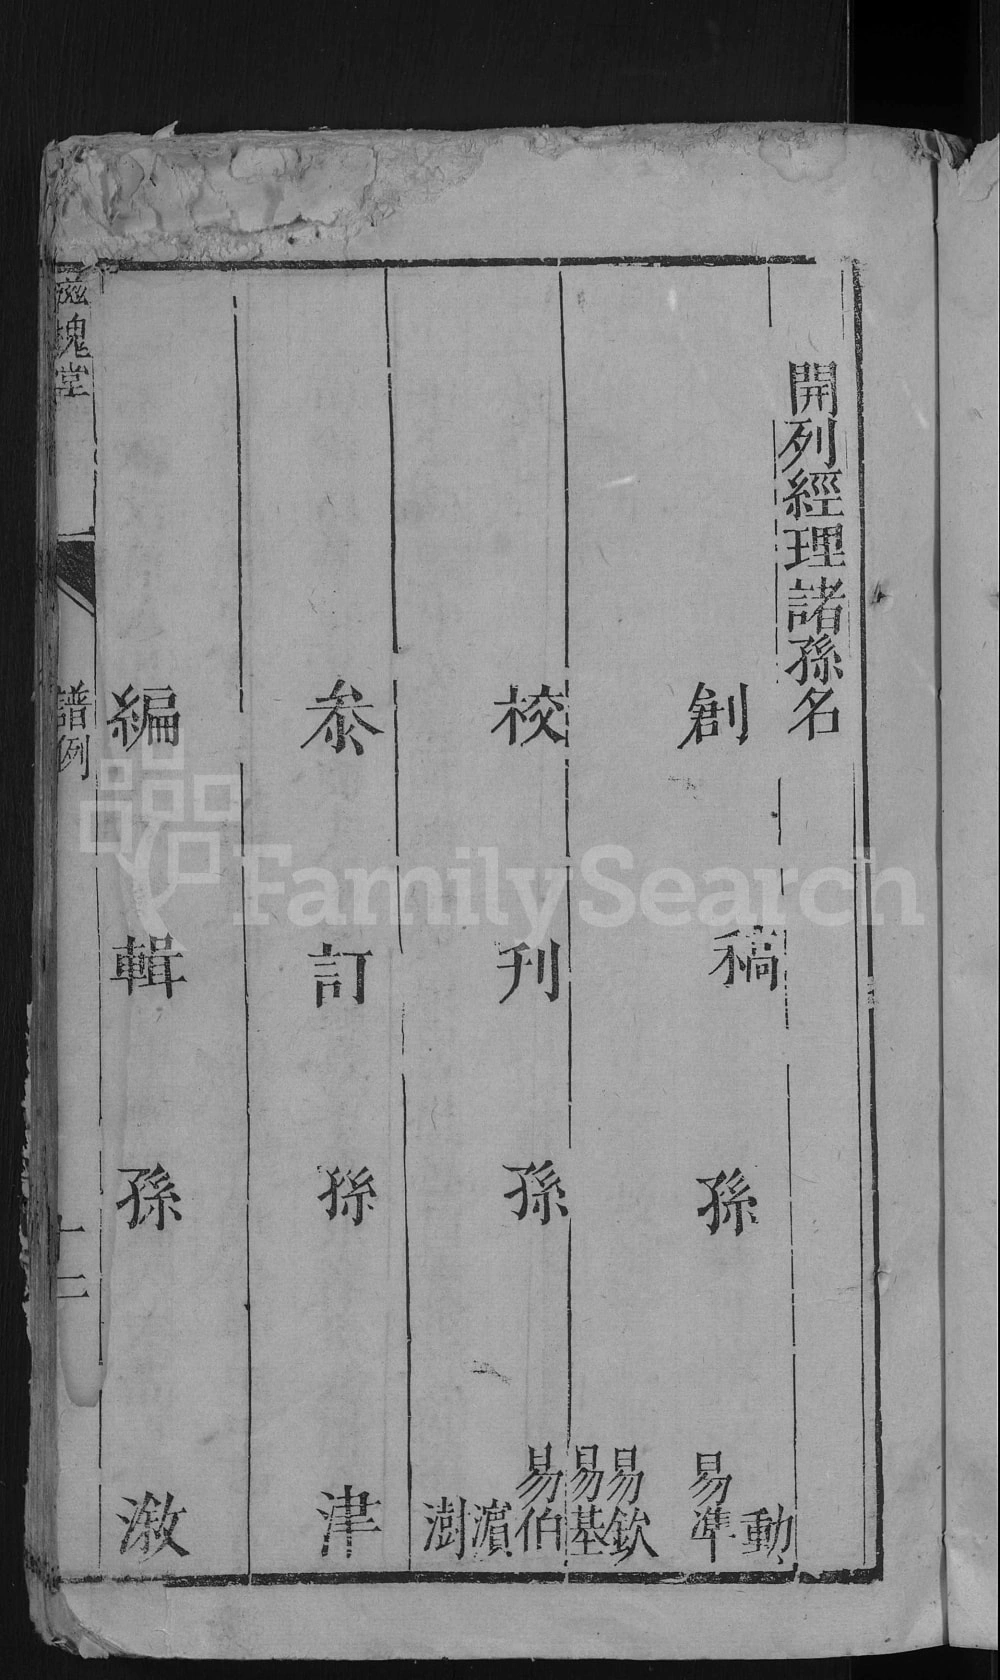 開列經理諸孫名
創稿孫動
易準
校刊孫易欽
易基
易伯
濵
澍
叅訂孫津
編輯孫漵
槐堂
譜例
十二
FamilySearch